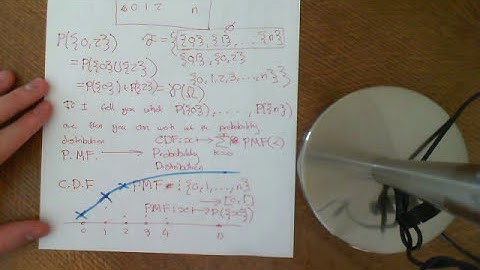 0 1 2 n
P({0,2}) F = {{0}, {1}, ... {n}
{0,1}, {0,2}
= P({0}∪{2}) {0,1,2,3,...,n}}
= P({0})+P({2}) = P(Ω)
If I tell you what P({0}), ..., P({n})
are then you can work out the probability
distribution CDF: x → Σ PMF(
P.M.F. → Probability
Distribution
C.D.F PMF : {0,1,...,n}
→ [0,1]
PMF: x → P({x})
0 1 2 3 4 n